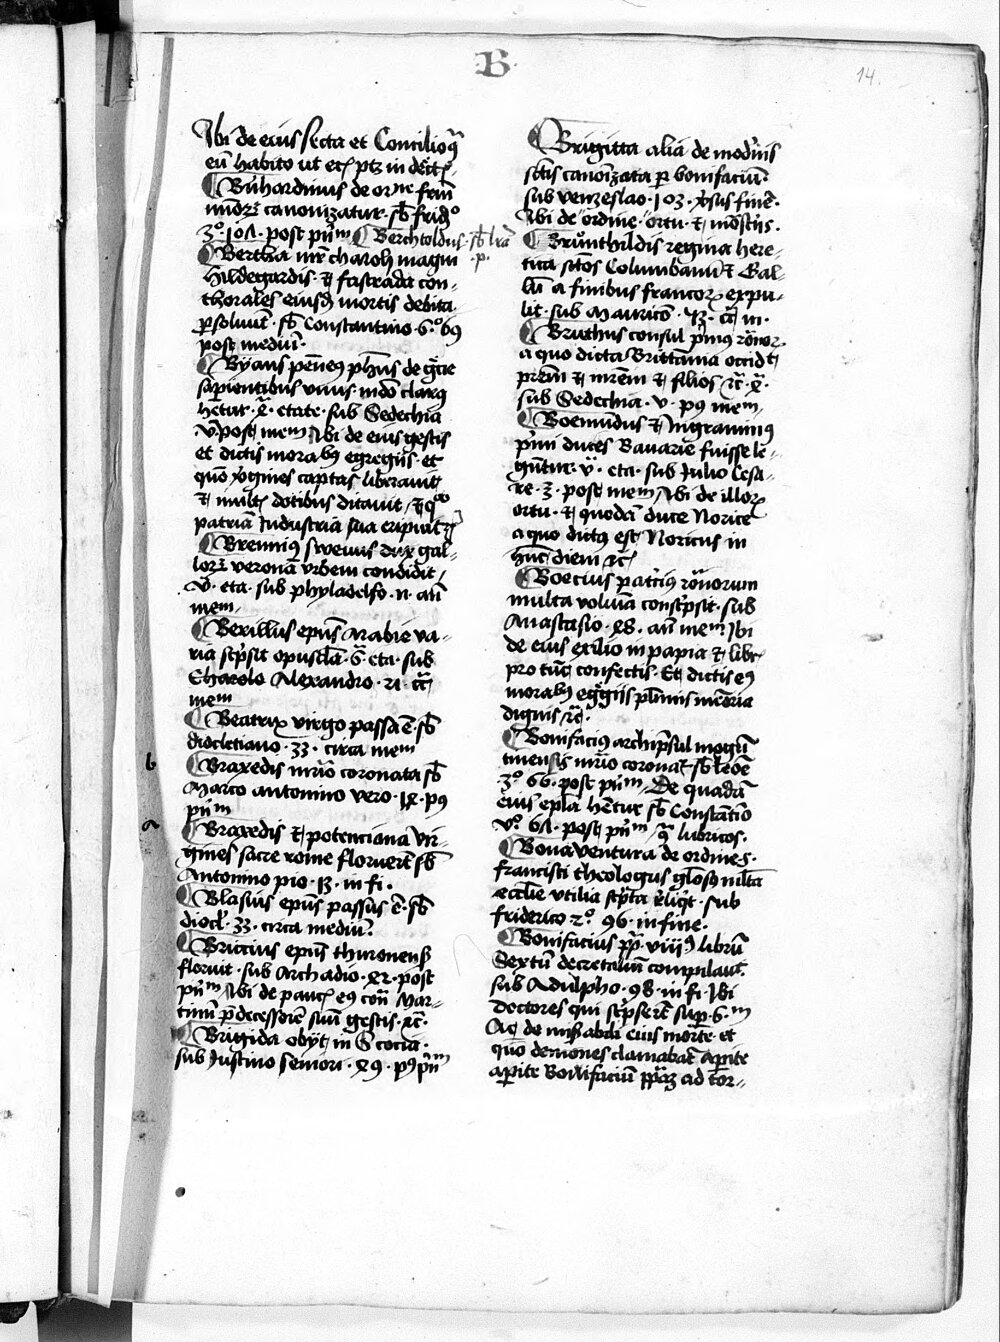 B
14.
Ibi de eius secta et Concilio q̄
eū habito ut etc ptz in decre
Bn̄hardinus de ordīe frm̄
mīoꝝ canonizatur · sb̄ fridº
3º · 101 · post pn̄m Berchtoldus · sb̄ lr̄a
·p·
Bertha mr̄ charoli magni
Hildegardis · ⁊ fastrada con-
thorales eiusdē mortis debita
psoluūt · sb̄ Constantino · 6º 69
post mediū ·
Byans peneꝰ ph̄us de gr̄cie
sapientibus vnus · mōdo clarꝰ
hētur · etate · sub Sedechia
v post mem Ibi de eius gestis
et dictis moralibꝰ egregijs · et
quō v̄gines captas liberauit
⁊ multis dotibus ditauit · ⁊ qº
patriā Industria sua eripuit ⁊c̄
Brennius sweuus dux gal-
loꝝ veronā vrbem condidit
v · eta · sub phyladelfo · n · an̄
mem ·
Berillus epūs Arabie va-
ria sc̄psit opuscla · 6 · eta · sub
Alexandro · 21 · c̄c̄
mem
Beatrix virgo passa ē · sb̄
diocletiano · 33 · circa mem
b
Braxedis mr̄io coronata sb̄
Marco antonino vero · 19 · pꝰ
pn̄m
a
Braxedis ⁊ potenciana vir-
gines sacre rome floruerūt sb̄
Antonino pio · 13 · in fi ·
Blasius epūs passus ē · sb̄
diocl · 33 · circa mediū ·
Briccius epūs thuronensis
floruit · sub Archadio · 42 · post
pn̄m Ibi de paucis eꝰ cōn̄ Mar-
tinū p̄decessorē suū gestis · ⁊c̄ ·
Brigida obijt in Scocia ·
sub Iustino seniori · 49 · pꝰ pn̄m
Brigitta alia de modn̄is
sctīs canonizata p bonifaciū
sub venzeslao · 103 · v̄sus finē ·
Ibi de ordine · ortu · ⁊ indstijs ·
Brunthildis regina here-
tica sctōs Columbanū ⁊ Gal-
lū a finibus francoꝝ expu-
lit · sub Mauricio · 43 · c̄c̄ m ·
Bruthus consul pmus rōnoꝝ
a quo dicta Brittania occidit
prēm ⁊ mrēm ⁊ filios ⁊c̄ ·
sub Sedechia · v · pꝰ mem
Boemundus ⁊ Ingraminus
pmi duces Bauarie fuisse le-
gūtur · v · eta · sub Iulio Cesa-
re · 3 · post mem Ibi de illoꝝ
ortu · ⁊ quodā duce Norice
a quo dictꝰ est Noricus in
hūc diem ⁊c̄
Boecius patricius rōnorum
multa volumīa consc̄psit · sub
Anastasio · 48 · an̄ mem Ibi
de eius exilio in papia ⁊ libr̄
pro tūc confectis · Et dictis eꝰ
moralibꝰ egregijs plurimis memōria
dignis ⁊c̄ ·
Bonifaciꝰ archip̄sul mogū
tinensis mr̄io coronat sb̄ leōe
3º 66 · post pn̄m De quadā
eius epl̄a hētur sb̄ Constantīo
vº · 61 · post pn̄m · q̄ lubricos ·
Bonauentura de ordine s ·
francisci theologus glosꝰ mlt̄a
ecclie vtilia scpta reliqt · sub
friderico 2º · 96 · in fine ·
Bonifacius pp̄ · viij librū
Sextū decretaliū compilauit
sub Adulpho · 98 · in fi Ibi
doctores qui scpserūt sup · 6m
Ac de misabili eius morte · et
quō demones clamabāt Aperite
aperite Bonifaciū papā ad tor-